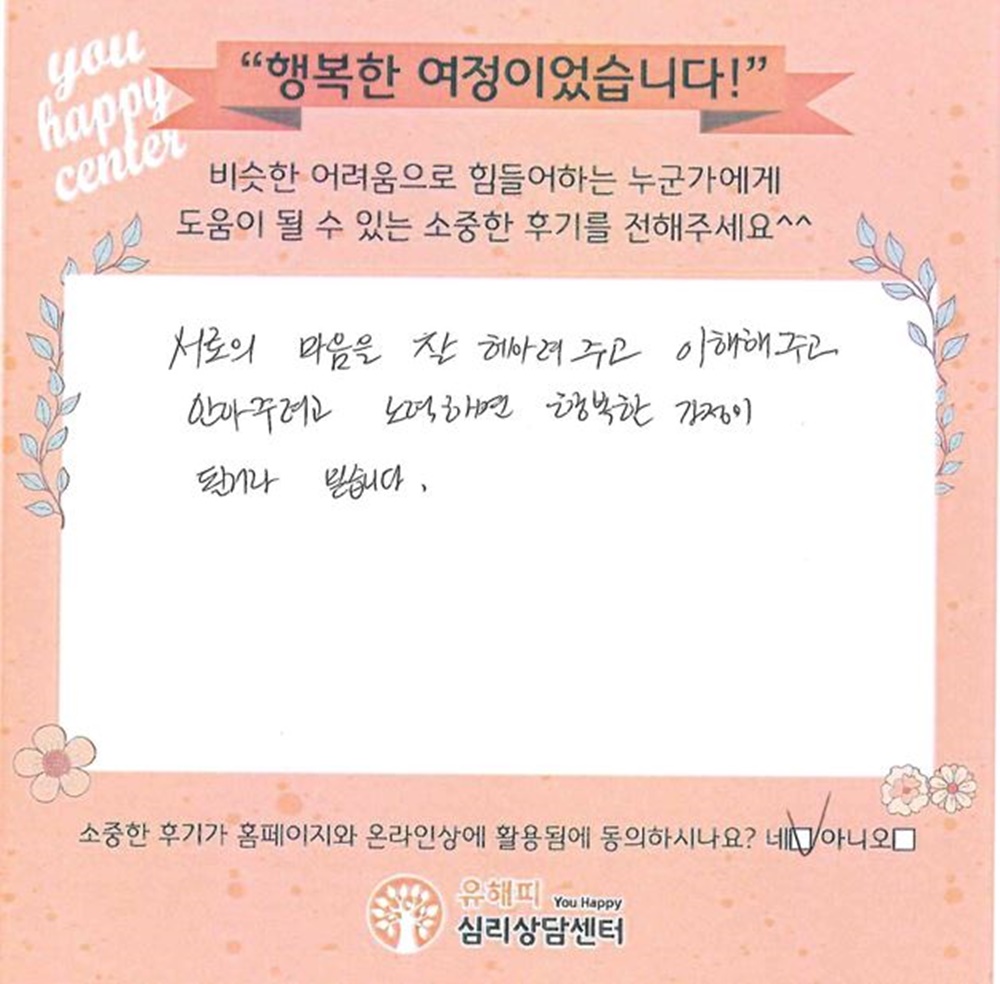 you
happy
center
“행복한 여정이었습니다!”
비슷한 어려움으로 힘들어하는 누군가에게
도움이 될 수 있는 소중한 후기를 전해주세요^^
서로의 마음을 잘 헤아려 주고 이해해 주고
안아주려고 노력하면 행복한 감정이
될거라 믿습니다.
소중한 후기가 홈페이지와 온라인상에 활용됨에 동의하시나요? 네 아니오
유해피 You Happy
심리상담센터